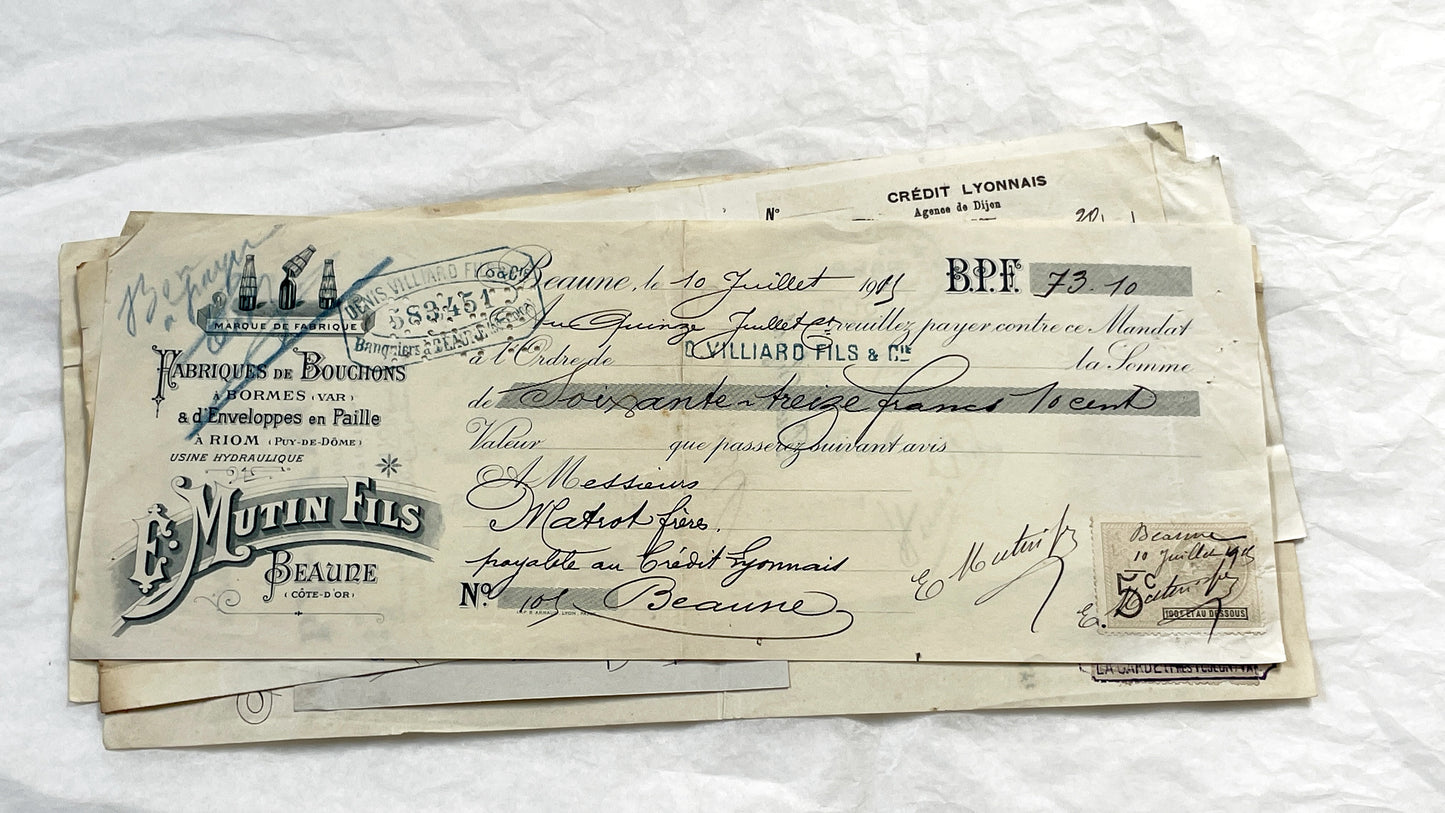 CRÉDIT LYONNAIS
Agence de Dijon
N°
20
MARQUE DE FABRIQUE
FABRIQUES DE BOUCHONS
À BORMES (VAR)
& d'Enveloppes en Paille
À RIOM (PUY-DE-DÔME)
USINE HYDRAULIQUE
E. MUTIN FILS
BEAUNE
(CÔTE-D'OR)
DENIS VILLIARD FILS & Cie
583451
Banquiers à BEAUNE
Beaune, le 10 Juillet 1915 B.P.F. 73.10
Au Quinze Juillet Ct veuillez payer contre ce Mandat
à l'Ordre de D. VILLIARD FILS & Cie la Somme
de Soixante-treize francs 10 cent
Valeur que passerez suivant avis
A Messieurs
Matrot frères.
payable au Crédit Lyonnais
N° 105 Beaune
E Mutin fils
Beaune
10 Juillet 1915
5c
E. Mutin fils
100F ET AU DESSOUS